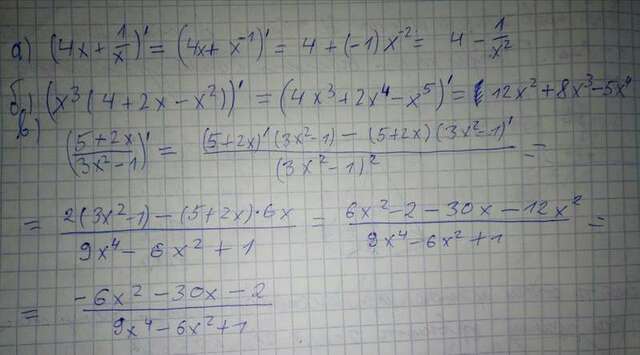 а) (4x + 1/x)' = (4x + x⁻¹)' = 4 + (-1)x⁻² = 4 - 1/x²
б) (x³(4 + 2x - x²))' = (4x³ + 2x⁴ - x⁵)' = 12x² + 8x³ - 5x⁴
в) ((5 + 2x)/(3x² - 1))' = ((5 + 2x)'(3x² - 1) - (5 + 2x)(3x² - 1)')/(3x² - 1)² =
= (2(3x² - 1) - (5 + 2x)·6x)/(9x⁴ - 6x² + 1) = (6x² - 2 - 30x - 12x²)/(9x⁴ - 6x² + 1) =
= (-6x² - 30x - 2)/(9x⁴ - 6x² + 1)